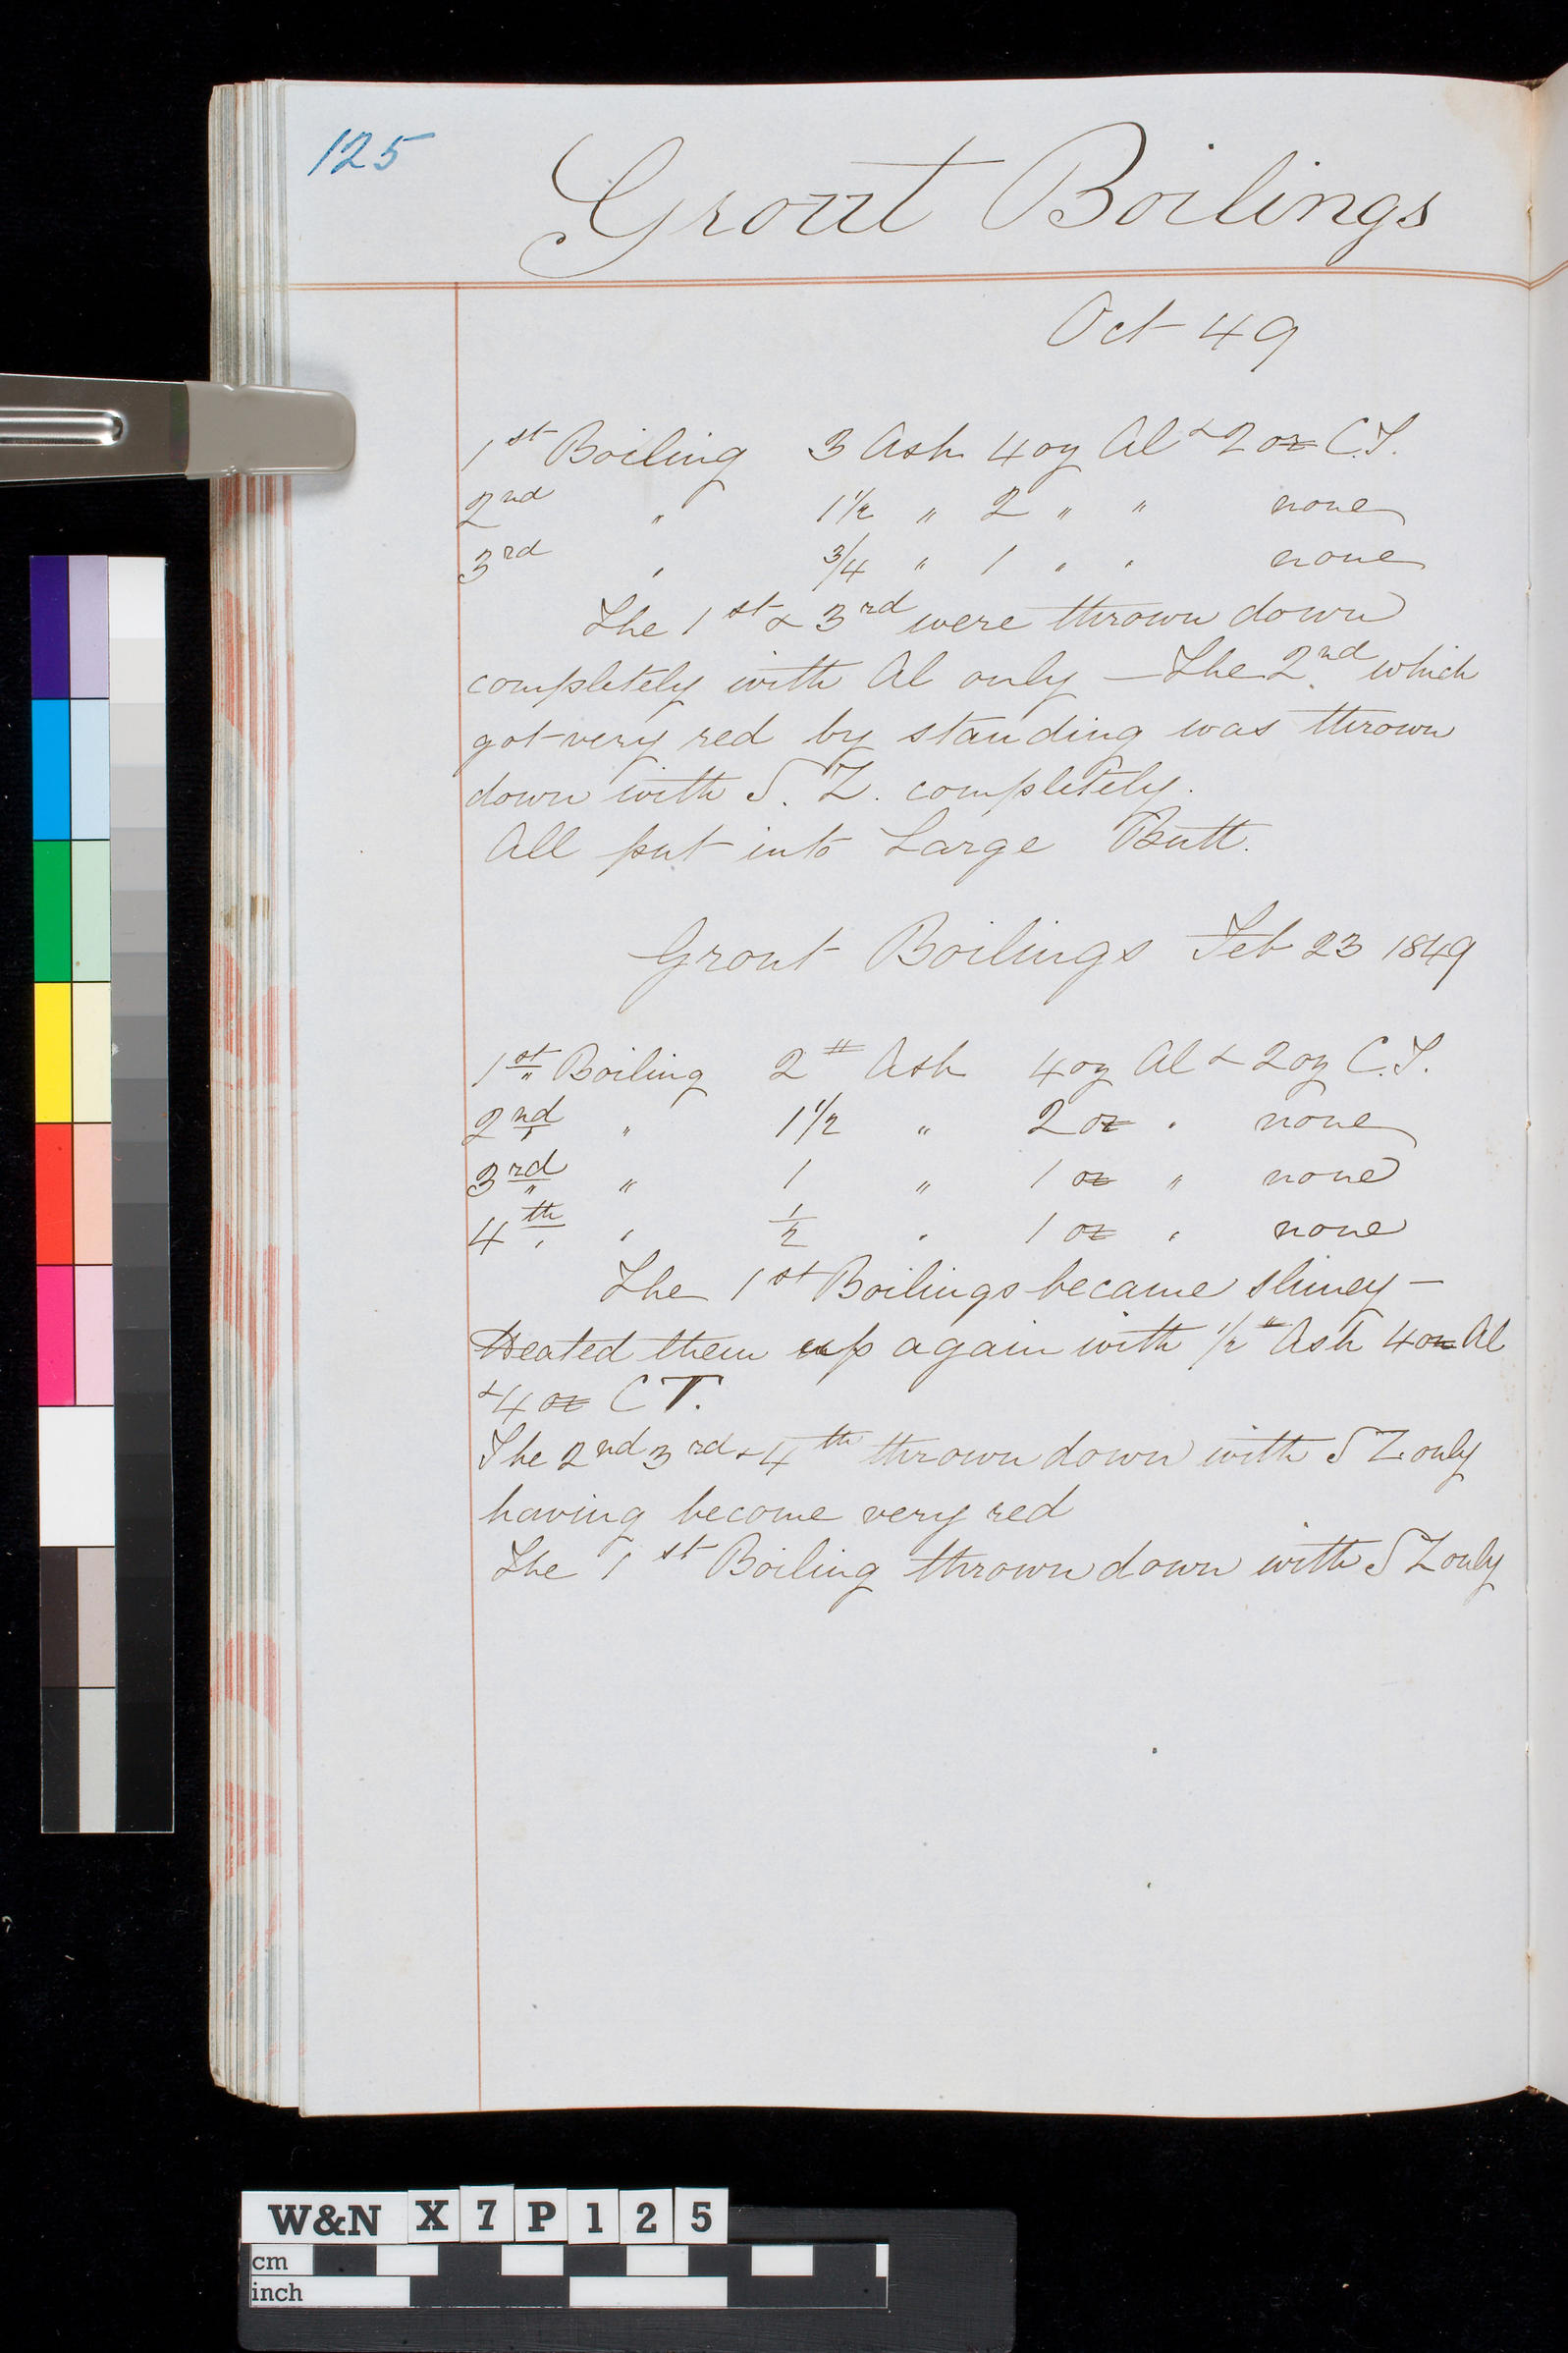 125
Grout Boilings
Oct 49
1st Boiling 3 Ash 4 oz Al & 2 oz C.T.
2nd " 1 1/2 " 2 " " none
3rd " 3/4 " 1 " " none
The 1st & 3rd were thrown down
completely with Al only — The 2nd which
got very red by standing was thrown
down with S. Z. completely.
All put into Large Butt.
Grout Boilings Feb 23 1849
1st Boiling 2 # Ash 4 oz Al & 2 oz C.T.
2nd " 1 1/2 " 2 oz " none
3rd " 1 " 1 oz " none
4th " 1/2 " 1 oz " none
The 1st Boilings became slimey —
Heated them up again with 1/2 # Ash 4 oz Al
& 4 oz C T.
The 2nd 3rd & 4th thrown down with S Z only
having become very red
The 1st Boiling thrown down with S Z only
W&N X 7 P 1 2 5
cm
inch